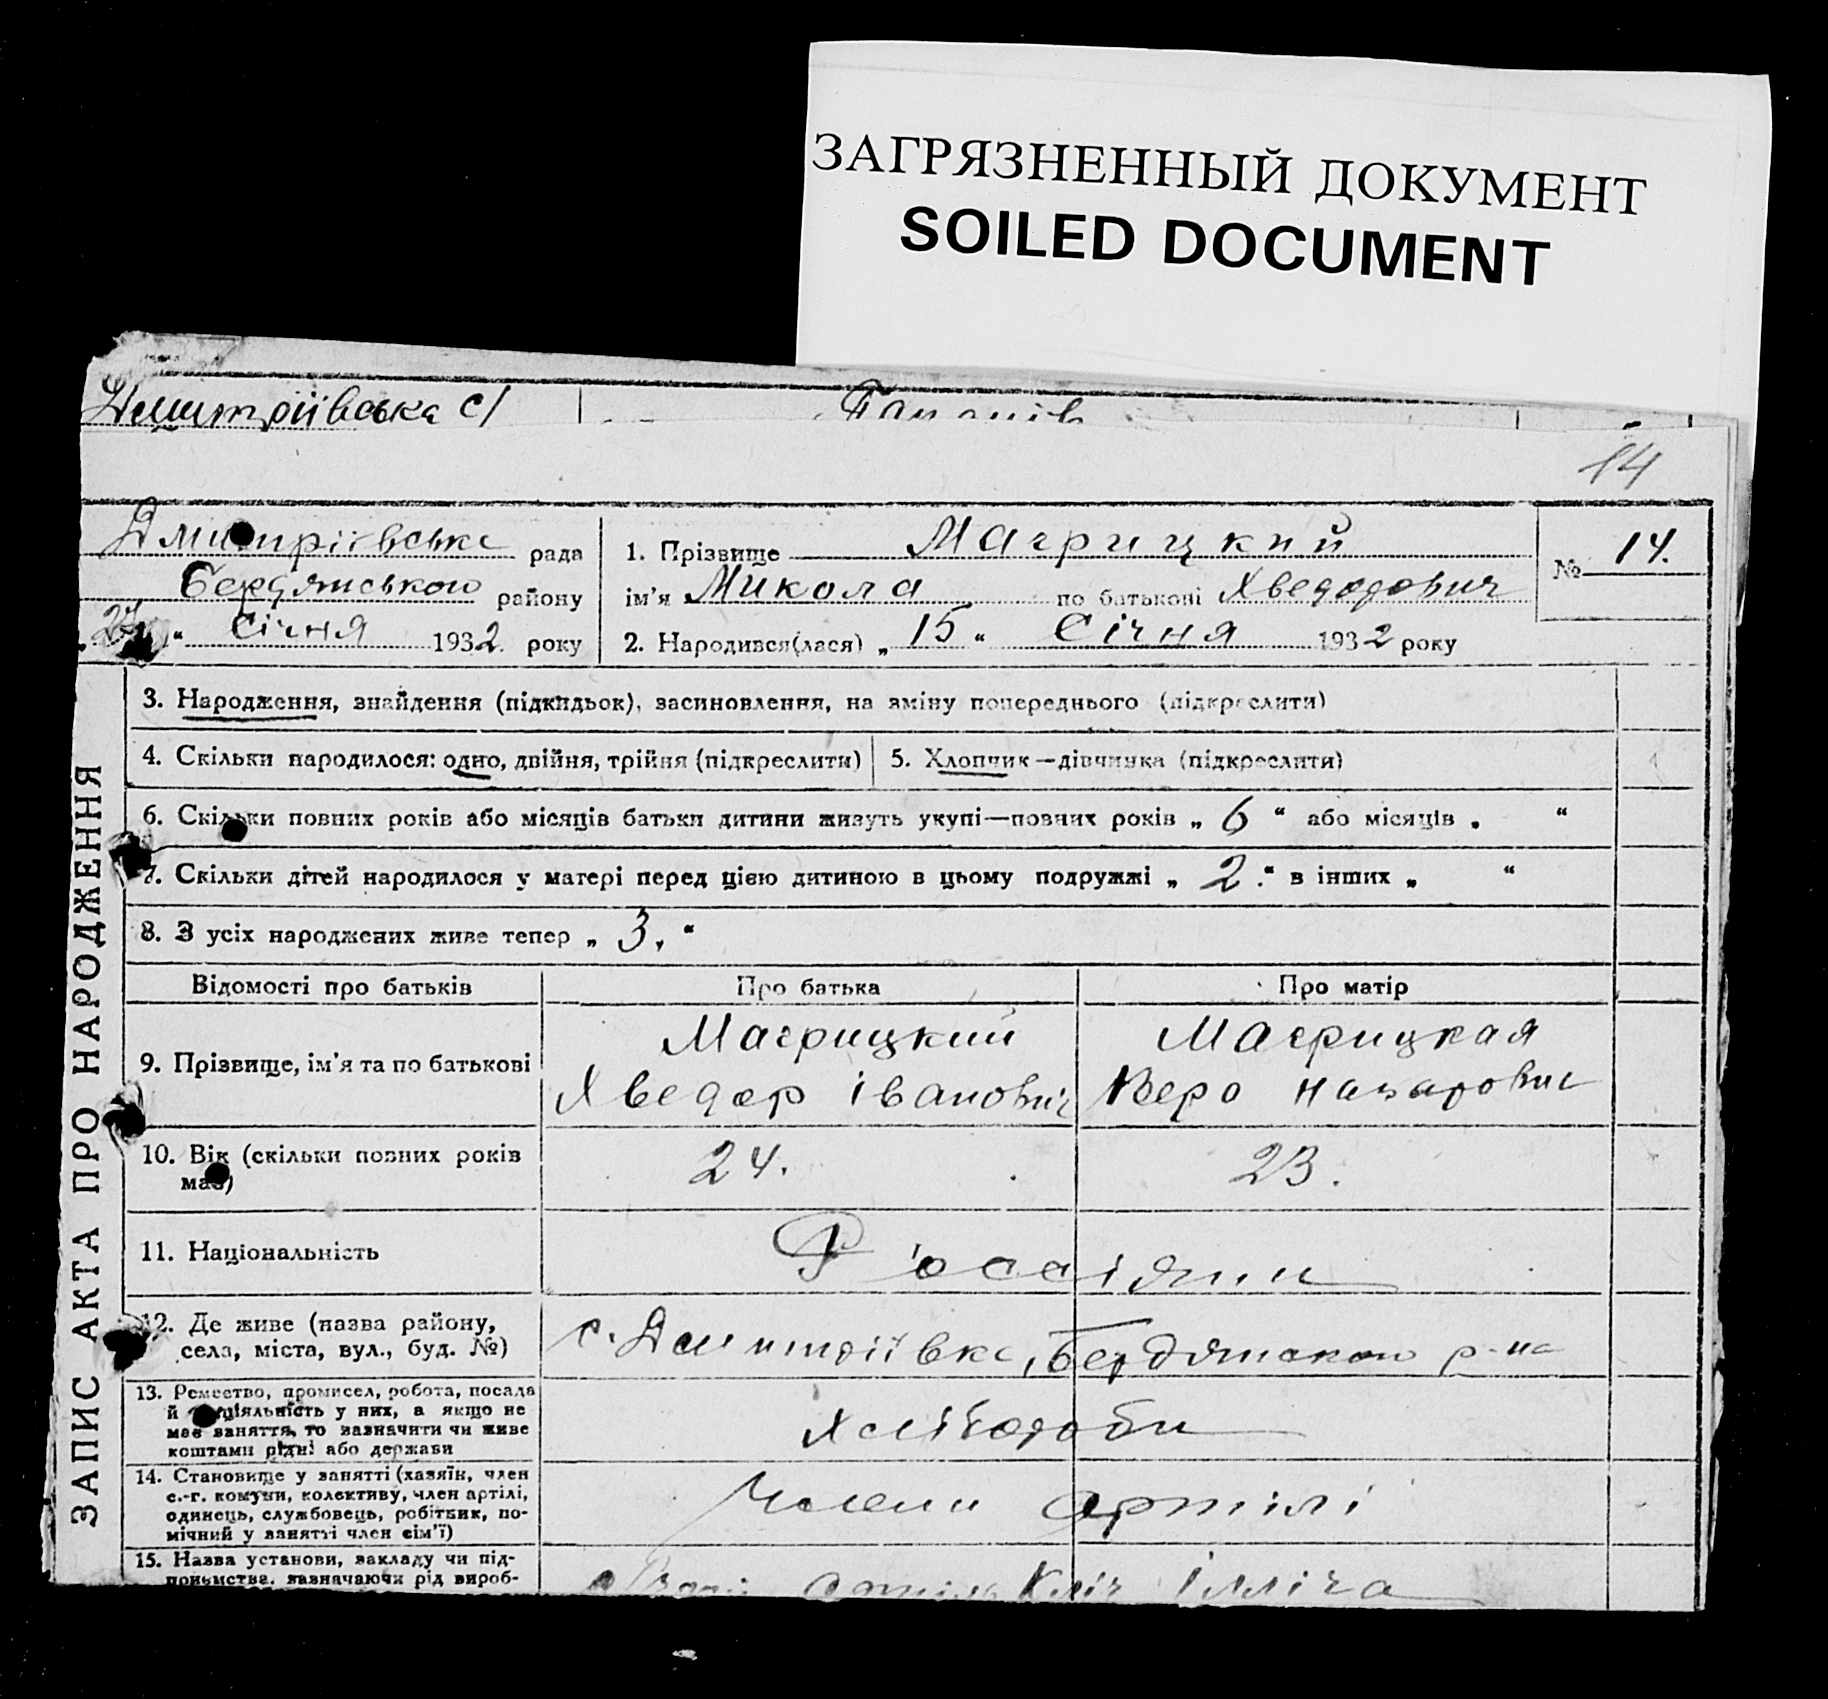 ЗАГРЯЗНЕННЫЙ ДОКУМЕНТ
SOILED DOCUMENT
Дмитріївська с/
14
Дмитрієвське рада
Бердянського району
27 " Січня 1932 року
1. Прізвище Магрицкий
ім'я Микола по батькові Хведорович
2. Народився(лася) „ 15 " Січня 1932 року
№ 14.
ЗАПИС АКТА ПРО НАРОДЖЕННЯ
3. Народження, знайдення (підкидьок), засиновлення, на зміну попереднього (підкреслити)
4. Скільки народилося: одно, двійня, трійня (підкреслити)
5. Хлопчик—дівчинка (підкреслити)
6. Скільки повних років або місяців батьки дитини живуть укупі—повних років „ 6 " або місяців „ "
7. Скільки дітей народилося у матері перед цією дитиною в цьому подружжі „ 2. " в інших „ "
8. З усіх народжених живе тепер „ 3. "
Відомості про батьків
Про батька
Про матір
9. Прізвище, ім'я та по батькові
Магрицкий
Хведор івановіч
Магрицкая
Веро назаровис
10. Вік (скільки повних років
має)
24.
23.
11. Національність
Россіяни
12. Де живе (назва району,
села, міста, вул., буд. №)
с. Дмитріївка, Бердянского р-на
13. Ремество, промисел, робота, посада
й спеціяльність у них, а якщо не
має заняття, то зазначити чи живе
коштами рідні або держави
Хлібороби
14. Становище у занятті (хазяїн, член
с.-г. комуни, колективу, член артілі,
одинець, службовець, робітник, по-
мічний у занятті член сім'ї)
Члени артілі
15. Назва установи, закладу чи під-
приємства, зазначаючи рід вироб-
Кліч Ілліча